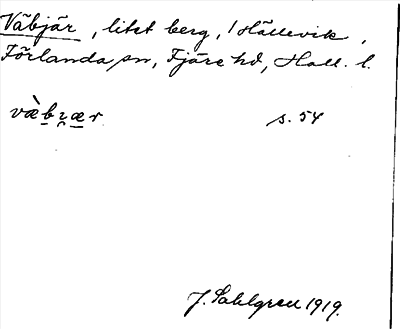 Väbjär, litet berg, i Hällevik,
Förlanda sn, Fjäre hd, Hall. l.
s. 54
J. Sahlgren 1919.